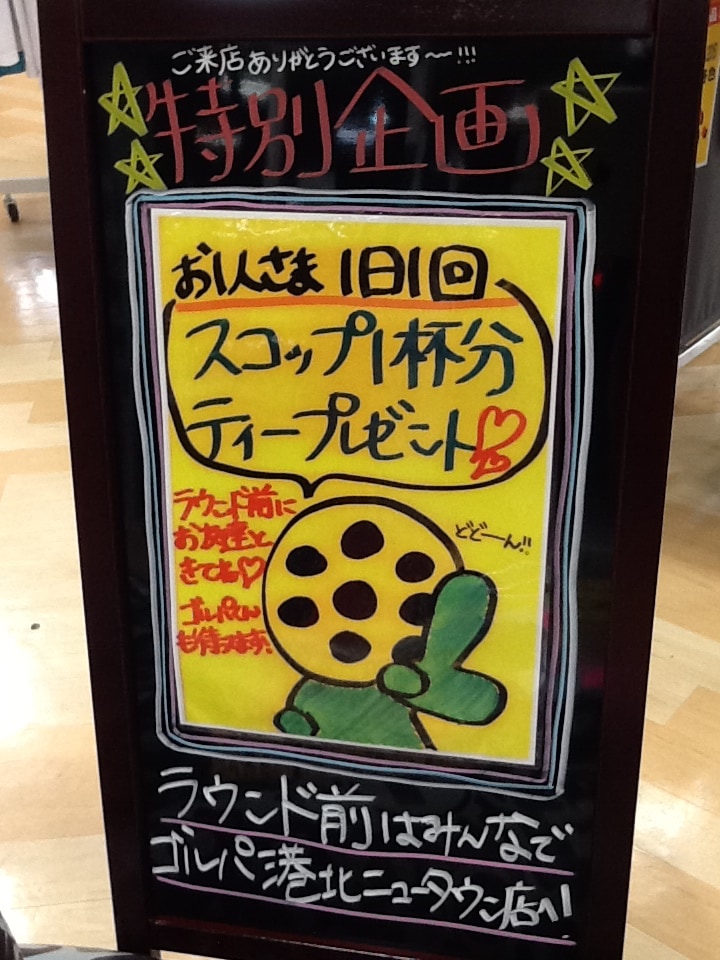 ご来店ありがとうございます〜!!!
特別企画
お1人さま 1日1回
スコップ1杯分
ティープレゼント
ラウンド前に
お友達と
きてね♡
ゴルパくん
も待ってます!
どどーん!!
ラウンド前はみんなで
ゴルパ港北ニュータウン店へ!